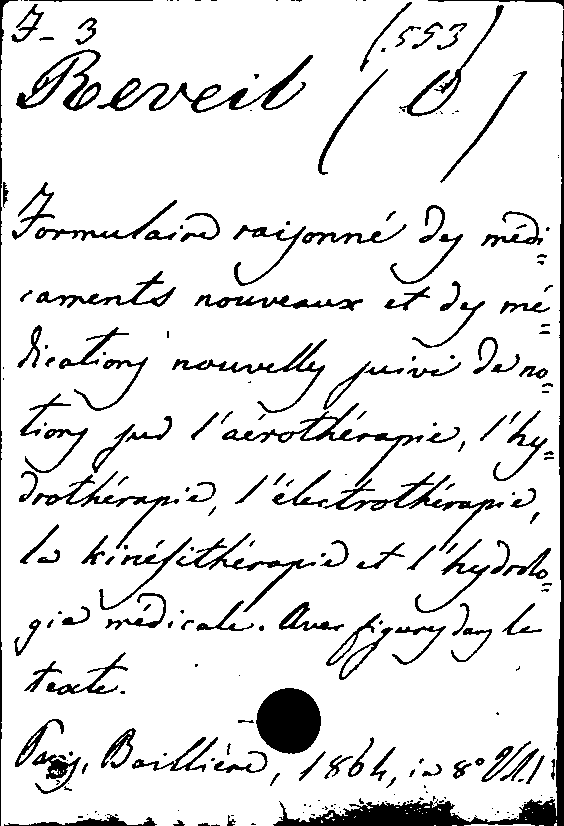 J-3 (553)
Reveil (O)
Formulaire raisonné des médi=
caments nouveaux et des mé=
dications nouvelles suivi de no=
tions sur l'aérothérapie, l'hy=
drothérapie, l'électrothérapie,
la kinésithérapie et l'hydrolo=
gie médicale. Avec figures dans le
texte.
Paris, Baillière, 1864, in 8°